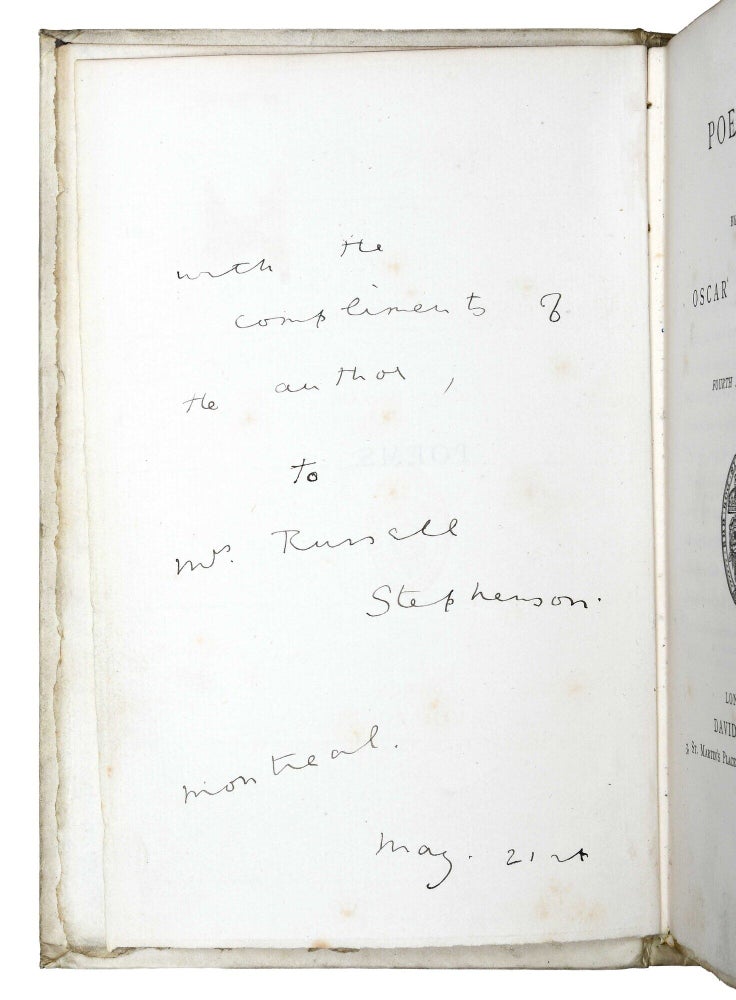 with the
compliments of
the author,
to
Mrs. Russell
Stephenson.
Montreal.
May. 21st
POEMS
POE
OSCAR
FOURTH
LON
DAVID
3, ST. MARTIN'S PLACE